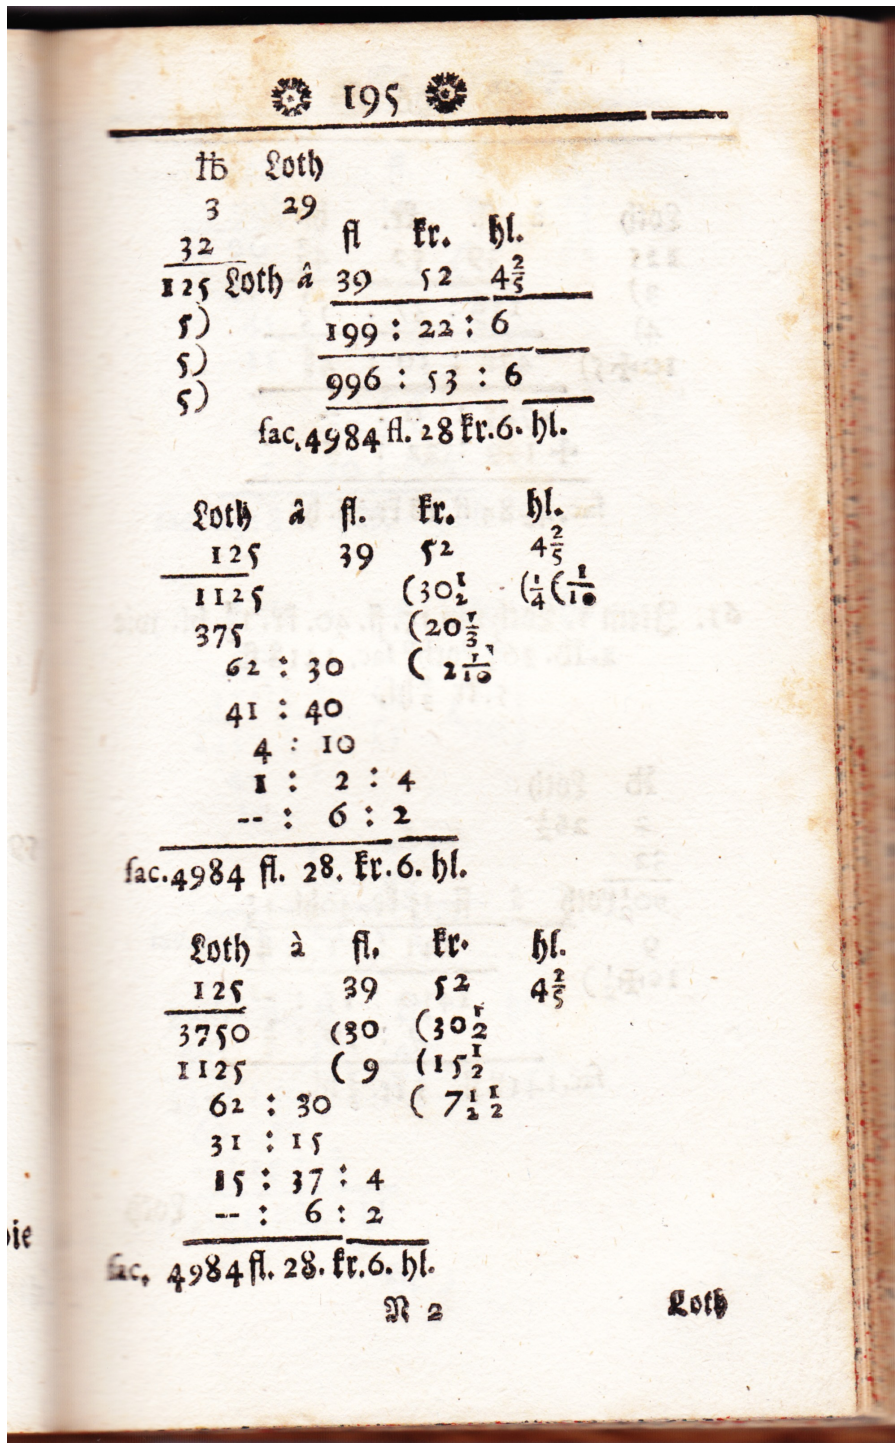 195
℔ Loth
3 29
32 fl kr. hl.
125 Loth â 39 52 4 2/5
5) 199 : 22 : 6
5) 996 : 53 : 6
5)
fac. 4984 fl. 28 kr. 6. hl.
Loth â fl. kr. hl.
125 39 52 4 2/5
1125 (30 1/2 (1/4 (1/10
375 (20 1/3
62 : 30 ( 2 1/10
41 : 40
4 : 10
1 : 2 : 4
-- : 6 : 2
fac. 4984 fl. 28. kr. 6. hl.
Loth à fl. kr. hl.
125 39 52 4 2/5
3750 (30 (30 1/2
1125 ( 9 (15 1/2
62 : 30 ( 7 1/2 1/2
31 : 15
15 : 37 : 4
-- : 6 : 2
fac. 4984 fl. 28. kr. 6. hl.
N 2 Loth